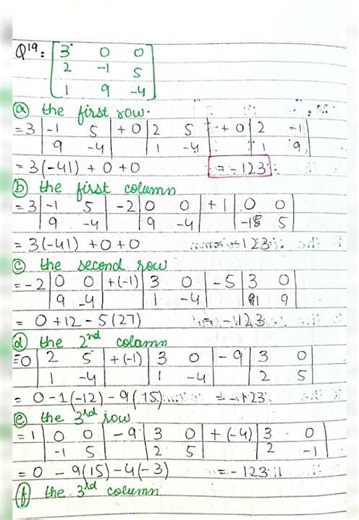 Q19: [3 0 0
2 -1 5
1 9 -4]
(a) the first row.
= 3 |-1 5| + 0 |2 5| + 0 |2 -1|
|9 -4| |1 -4| |1 9|
= 3(-41) + 0 + 0 = -123
(b) the first column
= 3 |-1 5| - 2 |0 0| + 1 |0 0|
|9 -4| |9 -4| |-1 5|
= 3(-41) + 0 + 0 = -123
(c) the second row
= -2 |0 0| + (-1) |3 0| - 5 |3 0|
|9 -4| |1 -4| |1 9|
= 0 + 12 - 5(27) = -123
(d) the 2nd colamn
= 0 |2 5| + (-1) |3 0| - 9 |3 0|
|1 -4| |1 -4| |2 5|
= 0 - 1(-12) - 9(15) = -123
(e) the 3rd row
= 1 |0 0| - 9 |3 0| + (-4) |3 0|
|-1 5| |2 5| |2 -1|
= 0 - 9(15) - 4(-3) = -123
(f) the 3rd column